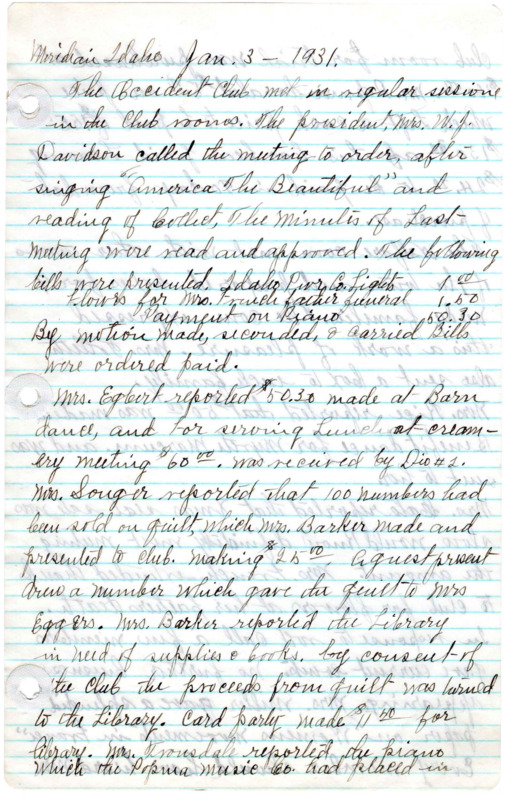 Meridian Idaho Jan. 3 - 1931.
The Occident Club met in regular sessione
in the Club rooms. The president, Mrs. W. J.
Davidson called the meeting to order, after
singing "America The Beautiful" and
reading of Collect, The minutes of Last
meeting were read and approved. The following
bills were presented. Idaho Pwr. Co. Lights 1.00
Flowers for Mrs. French father funeral 1.50
Payment on Piano 50.30
By motion made, seconded, & carried Bills
were ordered paid.
Mrs. Egbert reported $50.30 made at Barn
dance, and for serving Lunch at cream-
ery meeting $60.00. was received by Dio #2.
Mrs. Songer reported that 100 numbers had
been sold on quilt, which Mrs. Barker made and
presented to club. making $25.00 A guest present
drew a number which gave the quilt to Mrs
Eggers. Mrs. Barker reported the Library
in need of supplies & books. by consent of
the Club the proceeds from quilt was turned
to the Library. Card party made $11.00 for
library. Mrs. reported the piano
which the Popma Music Co. had placed in